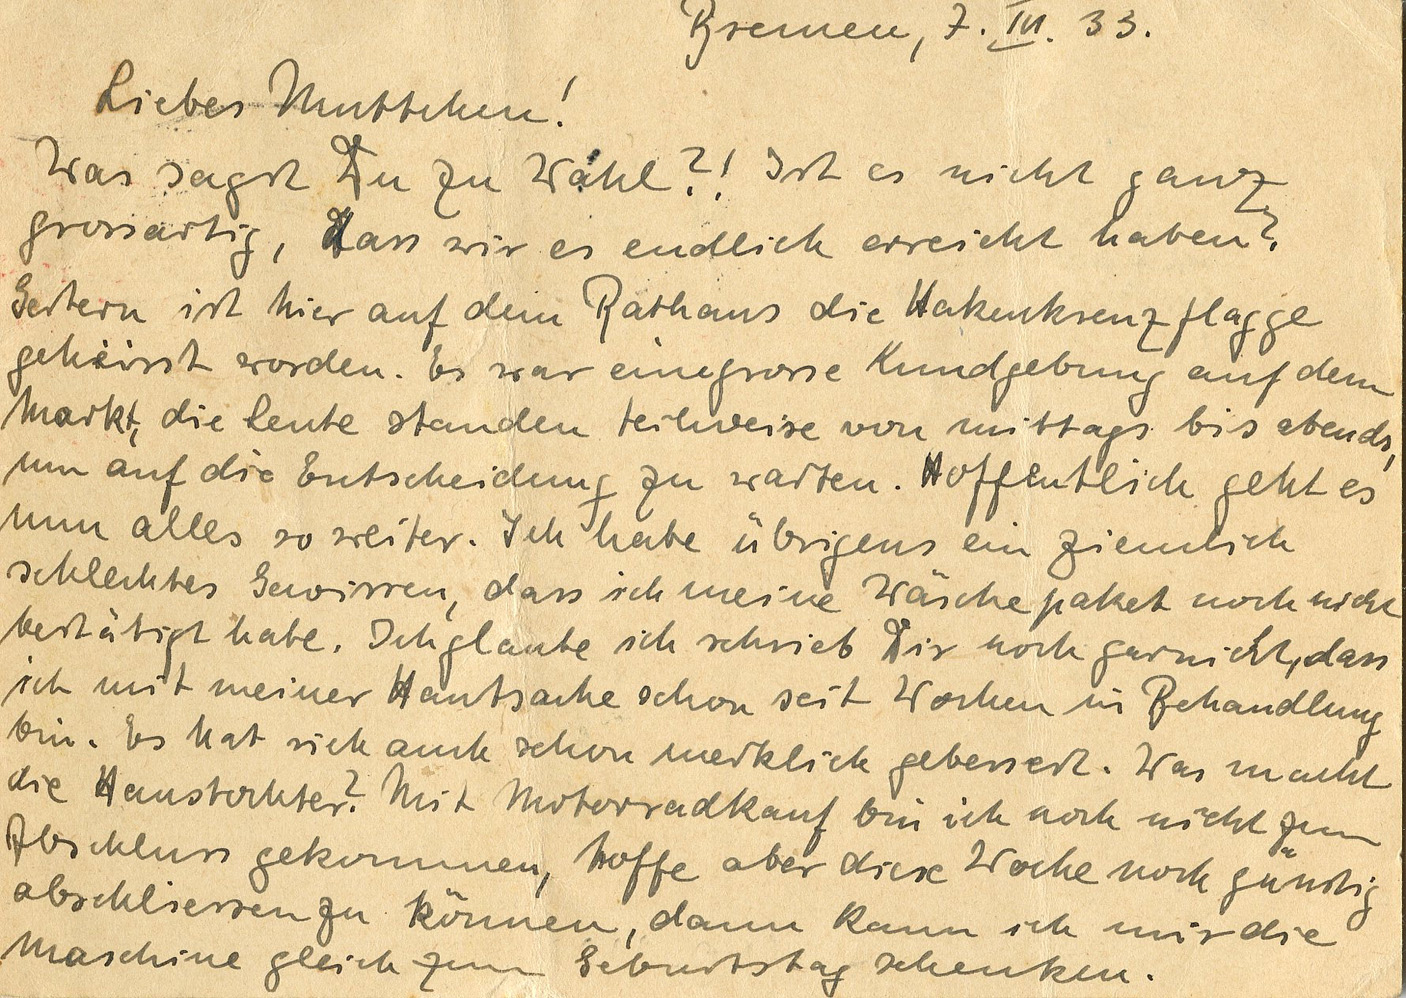 Bremen, 7. III. 33.
Liebes Muttchen!
Was sagst Du zu Wahl?! Ist es nicht ganz
grossartig, dass wir es endlich erreicht haben?
Gestern ist hier auf dem Rathaus die Hakenkreuzflagge
gehisst worden. Es war eine grosse Kundgebung auf dem
Markt, die Leute standen teilweise von mittags bis abends,
um auf die Entscheidung zu warten. Hoffentlich geht es
nun alles so weiter. Ich habe übrigens ein ziemlich
schlechtes Gewissen, dass ich meine Wäschepaket noch nicht
bestätigt habe. Ich glaube ich schrieb Dir noch garnicht, dass
ich mit meiner Hautsache schon seit Wochen in Behandlung
bin. Es hat sich auch schon merklich gebessert. Was macht
die Haustochter? Mit Motorradkauf bin ich noch nicht zum
Abschluss gekommen, hoffe aber diese Woche noch günstig
abschliessen zu können, dann kann ich mir die
Maschine gleich zum Geburtstag schenken.